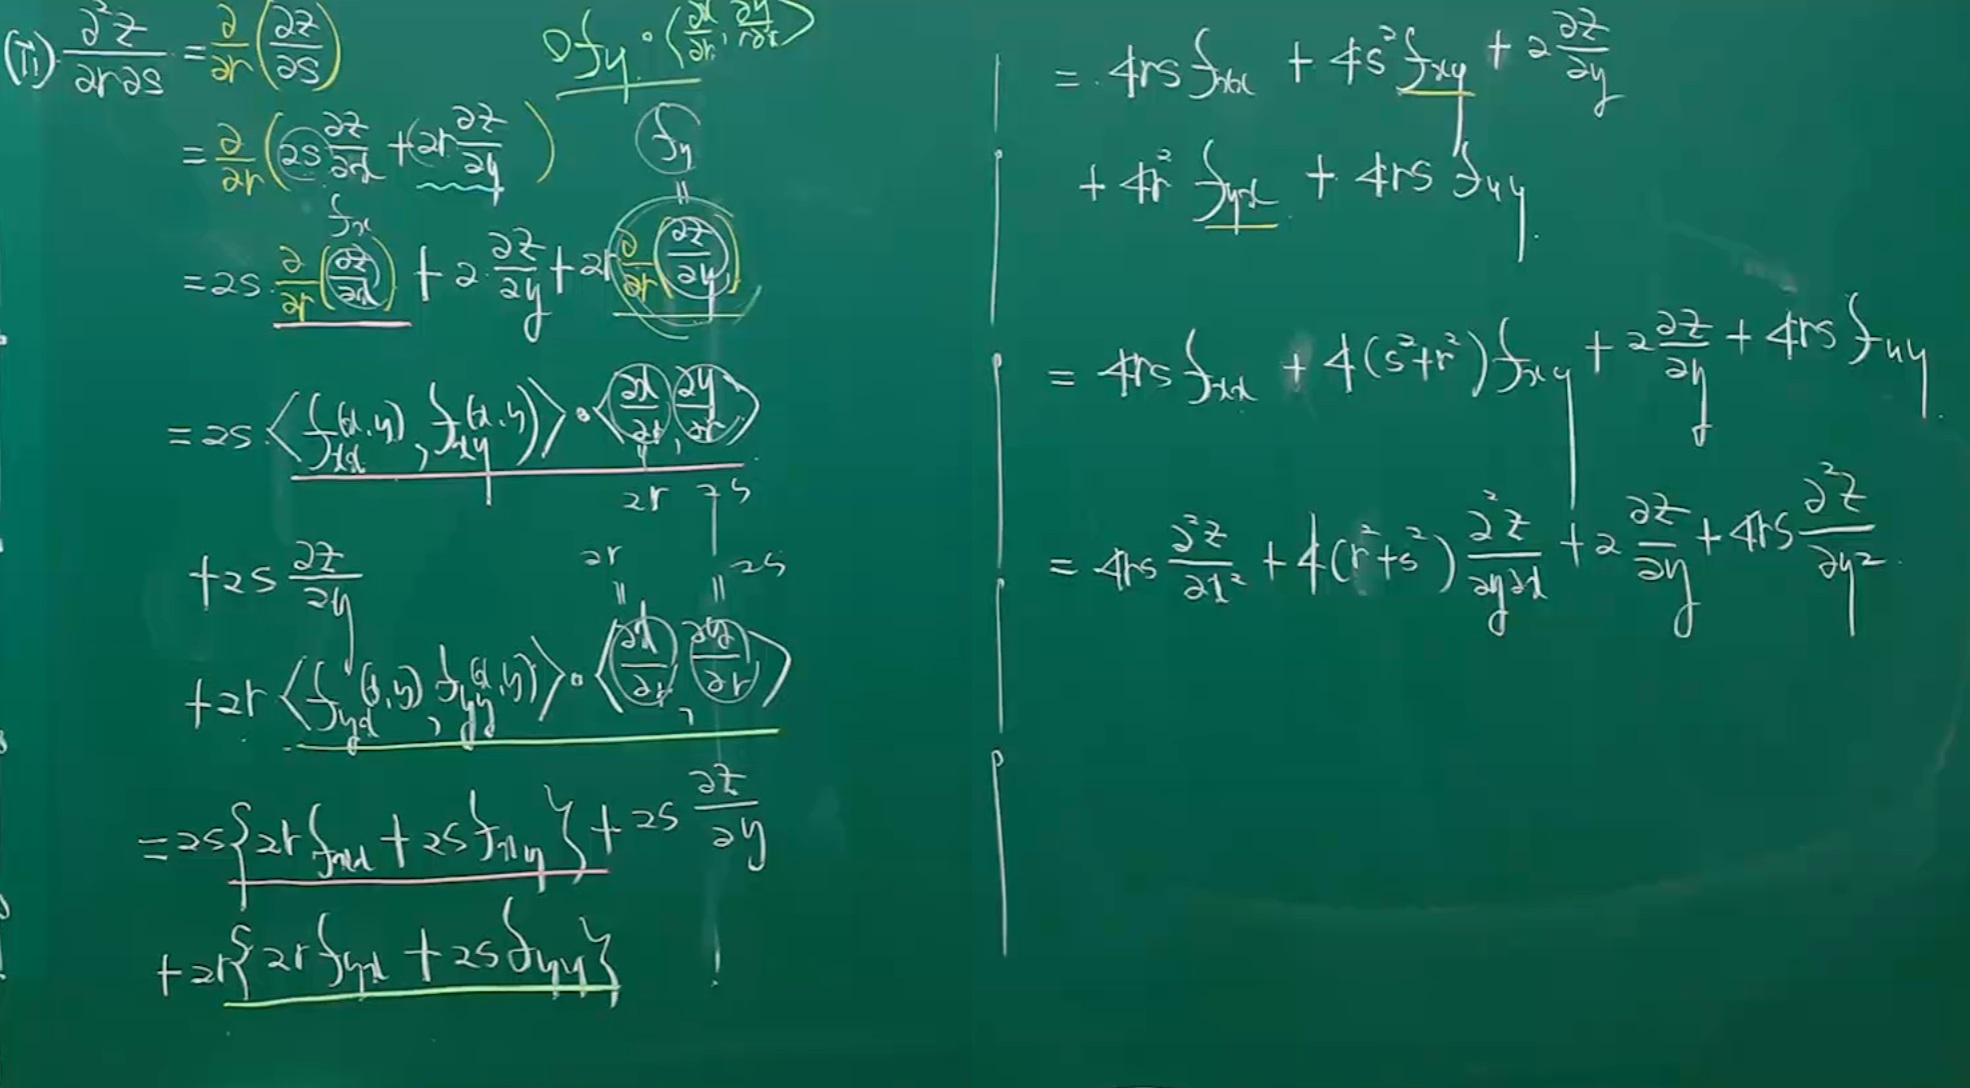 (ii) ∂²z/∂r∂s = ∂/∂r (∂z/∂s)
∇fy · <∂x/∂r, ∂y/∂r>
= ∂/∂r (2s ∂z/∂x + 2r ∂z/∂y)
fy
=
fx
= 2s · ∂/∂r (∂z/∂x) + 2 · ∂z/∂y + 2r ∂/∂r (∂z/∂y)
= 2s · <fxx(x,y), fxy(x,y)> · <∂x/∂r, ∂y/∂r>
2r 2s
+ 2s ∂z/∂y
2r 2s
= =
+ 2r <fyx(x,y), fyy(x,y)> · <∂x/∂r, ∂y/∂r>
= 2s{2r fxx + 2s fxy} + 2s ∂z/∂y
+ 2r{2r fyx + 2s fyy}
= 4rs fxx + 4s² fxy + 2 ∂z/∂y
+ 4r² fyx + 4rs fyy.
= 4rs fxx + 4(s²+r²) fxy + 2 ∂z/∂y + 4rs fyy.
= 4rs ∂²z/∂x² + 4(r²+s²) ∂²z/∂y∂x + 2 ∂z/∂y + 4rs ∂²z/∂y².